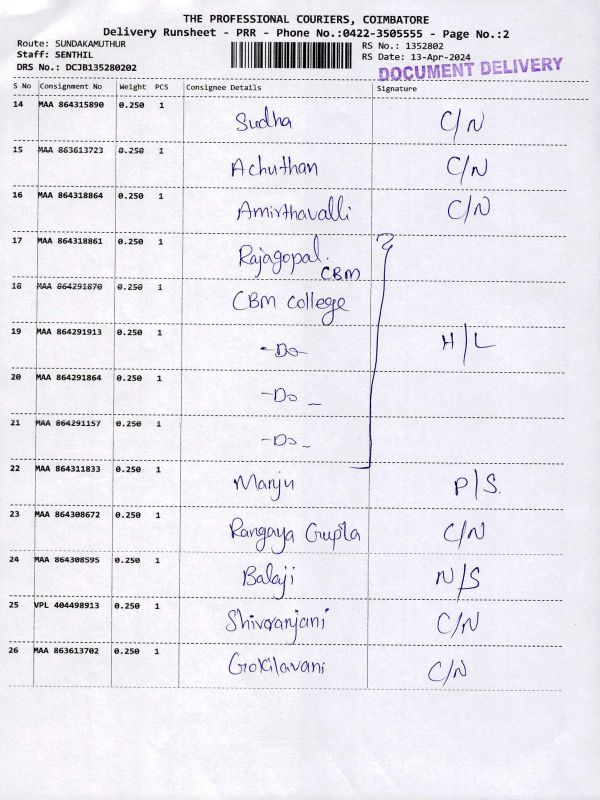 THE PROFESSIONAL COURIERS, COIMBATORE
Delivery Runsheet - PRR - Phone No.:0422-3505555 - Page No.:2
Route: SUNDAKAMUTHUR
Staff: SENTHIL
DRS No.: DCJB135280202
RS No.: 1352802
RS Date: 13-Apr-2024
DOCUMENT DELIVERY
S No Consignment No Weight PCS Consignee Details Signature
14 MAA 864315890 0.250 1 Sudha C/N
15 MAA 863613723 0.250 1 Achuthan C/N
16 MAA 864318864 0.250 1 Amirthavalli C/N
17 MAA 864318861 0.250 1 Rajagopal.
CBM
18 MAA 864291870 0.250 1 CBM College
19 MAA 864291913 0.250 1 -Do- H/L
20 MAA 864291864 0.250 1 -Do-
21 MAA 864291157 0.250 1 -Do-
22 MAA 864311833 0.250 1 Manju P/S.
23 MAA 864308672 0.250 1 Rangaya Gupta C/N
24 MAA 864308595 0.250 1 Balaji N/S
25 VPL 404498913 0.250 1 Shivaranjani C/N
26 MAA 863613702 0.250 1 Gokilavani C/N